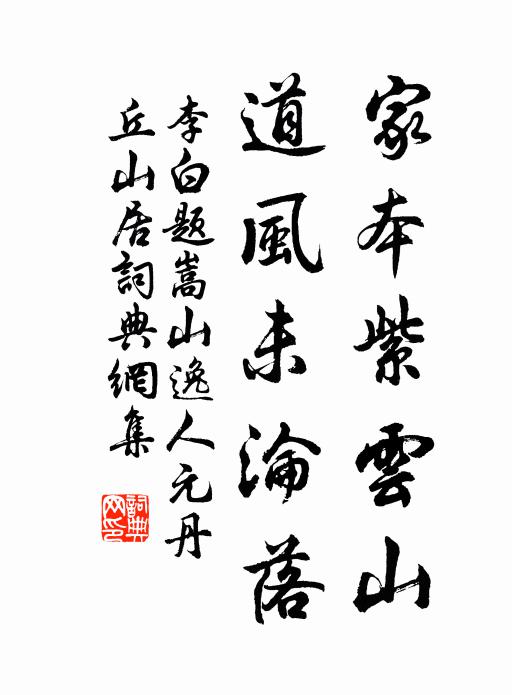 家本紫雲山
道風未淪落
李白題嵩山逸人元丹
丘山居詞典網集
詞典
网印